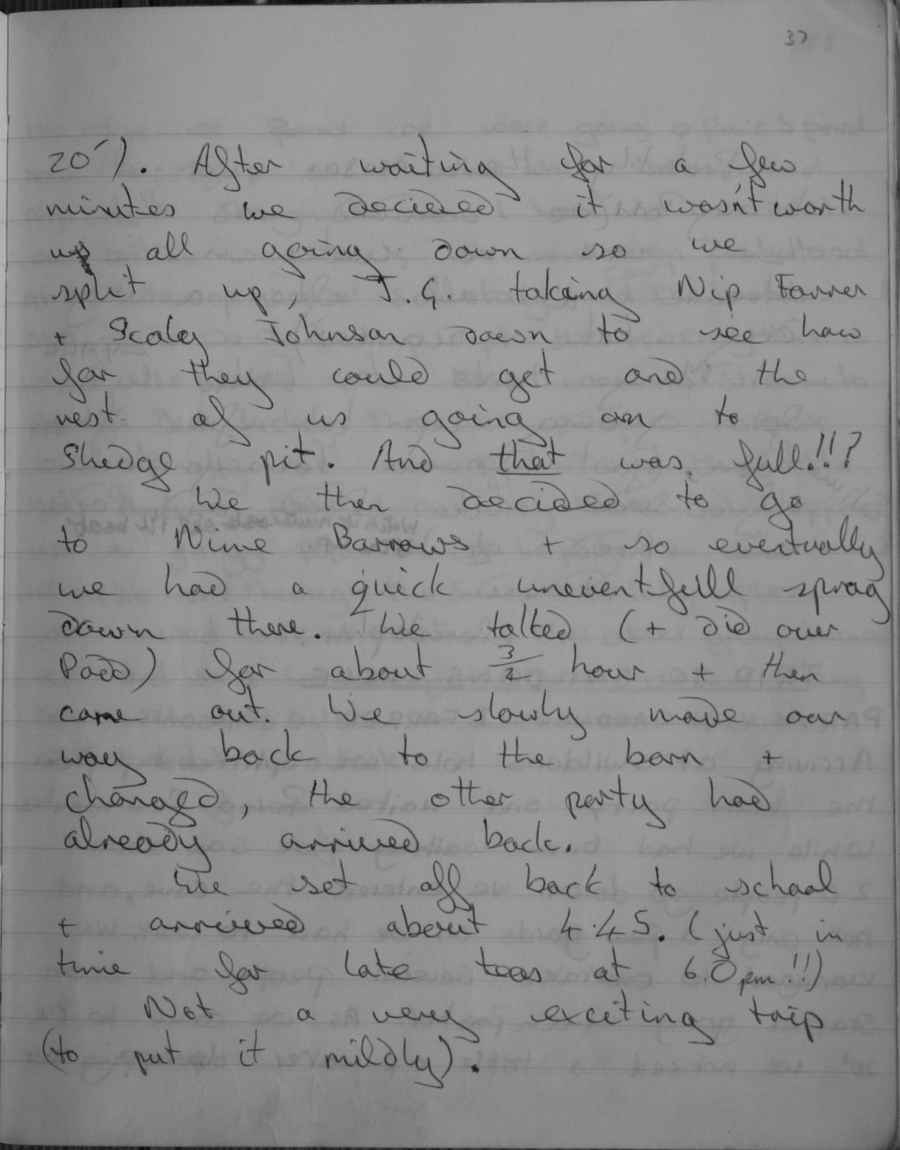 37
20'). After waiting for a few
minutes we decided it wasn't worth
us all going down so we
split up, J.G. taking Nip Farrer
+ Scaley Johnson down to see how
far they could get and the
rest of us going on to
Sludge pit. And that was full!!?
We then decided to go
to Nine Barrows + so eventually
we had a quick uneventfull sprag
down there. We talked (+ did over
Padd) for about 3/4 hour + then
came out. We slowly made our
way back to the barn +
changed, the other party had
already arrived back.
We set off back to school
+ arrived about 4.45. (just in
time for late teas at 6.0pm!!)
Not a very exciting trip
(to put it mildly).